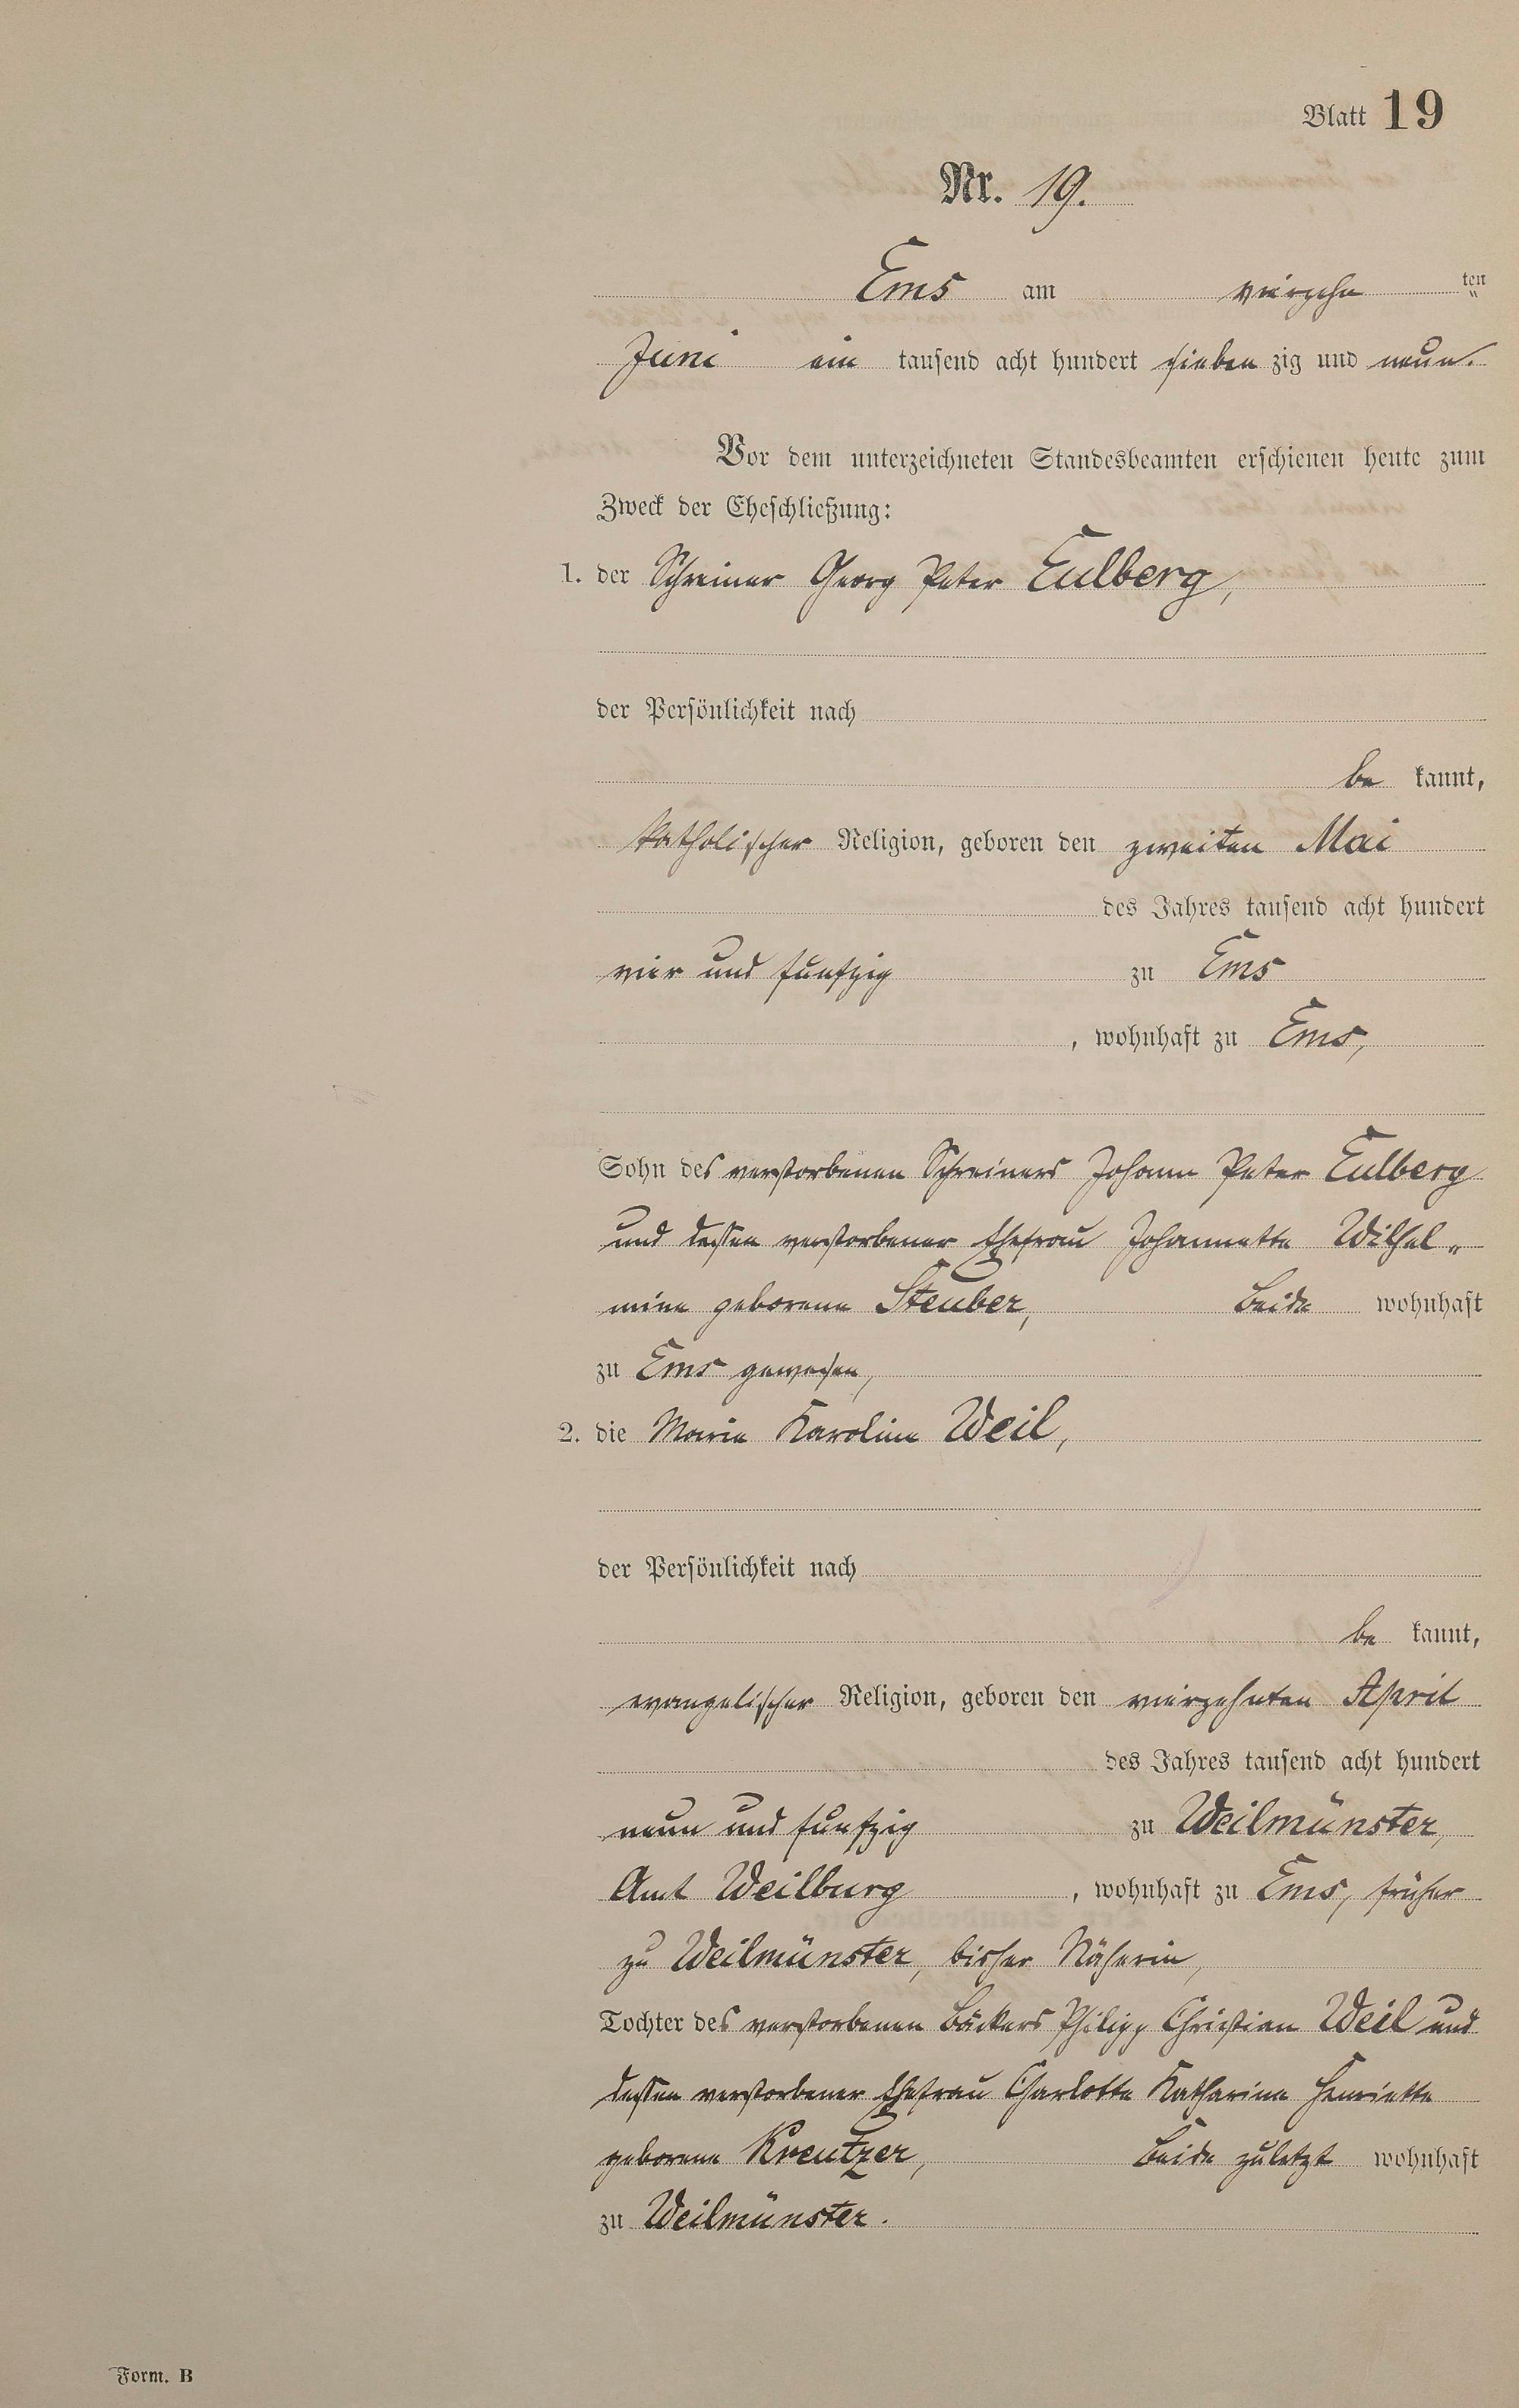 Blatt 19
Nr. 19.
Ems am vierzehn ten
Juni ein tausend acht hundert sieben zig und neun.
Vor dem unterzeichneten Standesbeamten erschienen heute zum
Zweck der Eheschließung:
1. der Schreiner Georg Peter Eulberg,
der Persönlichkeit nach
be kannt,
katholischer Religion, geboren den zweiten Mai
des Jahres tausend acht hundert
vier und fünfzig zu Ems
, wohnhaft zu Ems,
Sohn des verstorbenen Schreiners Johann Peter Eulberg
und dessen verstorbener Ehefrau Johannette Wilhel„
mine geborene Steuber, beide wohnhaft
zu Ems gewesen,
2. die Marie Karoline Weil,
der Persönlichkeit nach
be kannt,
evangelischer Religion, geboren den vierzehnten April
des Jahres tausend acht hundert
neun und fünfzig zu Weilmünster,
Amt Weilburg , wohnhaft zu Ems, früher
zu Weilmünster, bisher Näherin,
Tochter des verstorbenen Bäckers Philipp Christian Weil und
dessen verstorbener Ehefrau Charlotte Katharine Henriette
geborene Kreutzer, beide zuletzt wohnhaft
zu Weilmünster.
Form. B